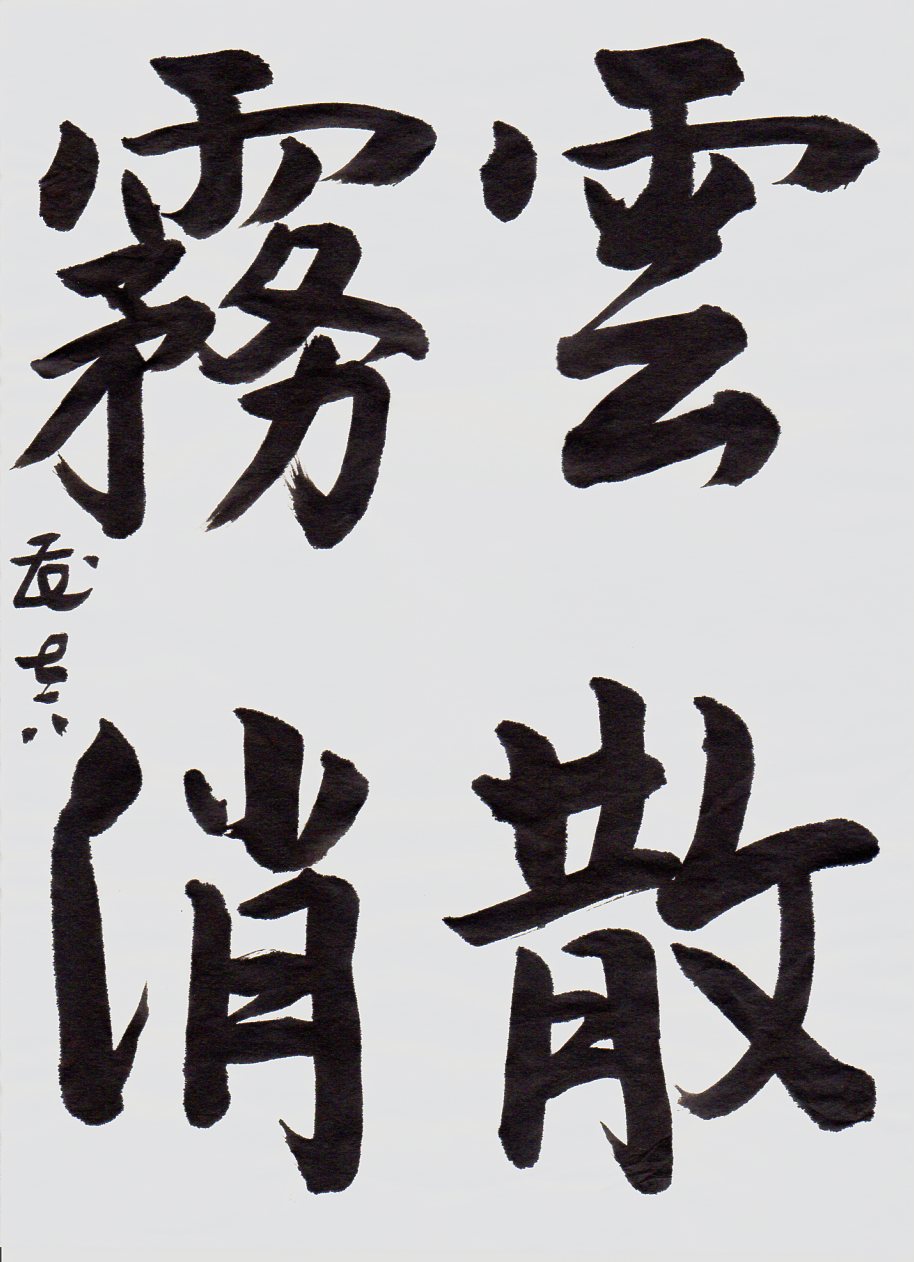 雲散
霧消